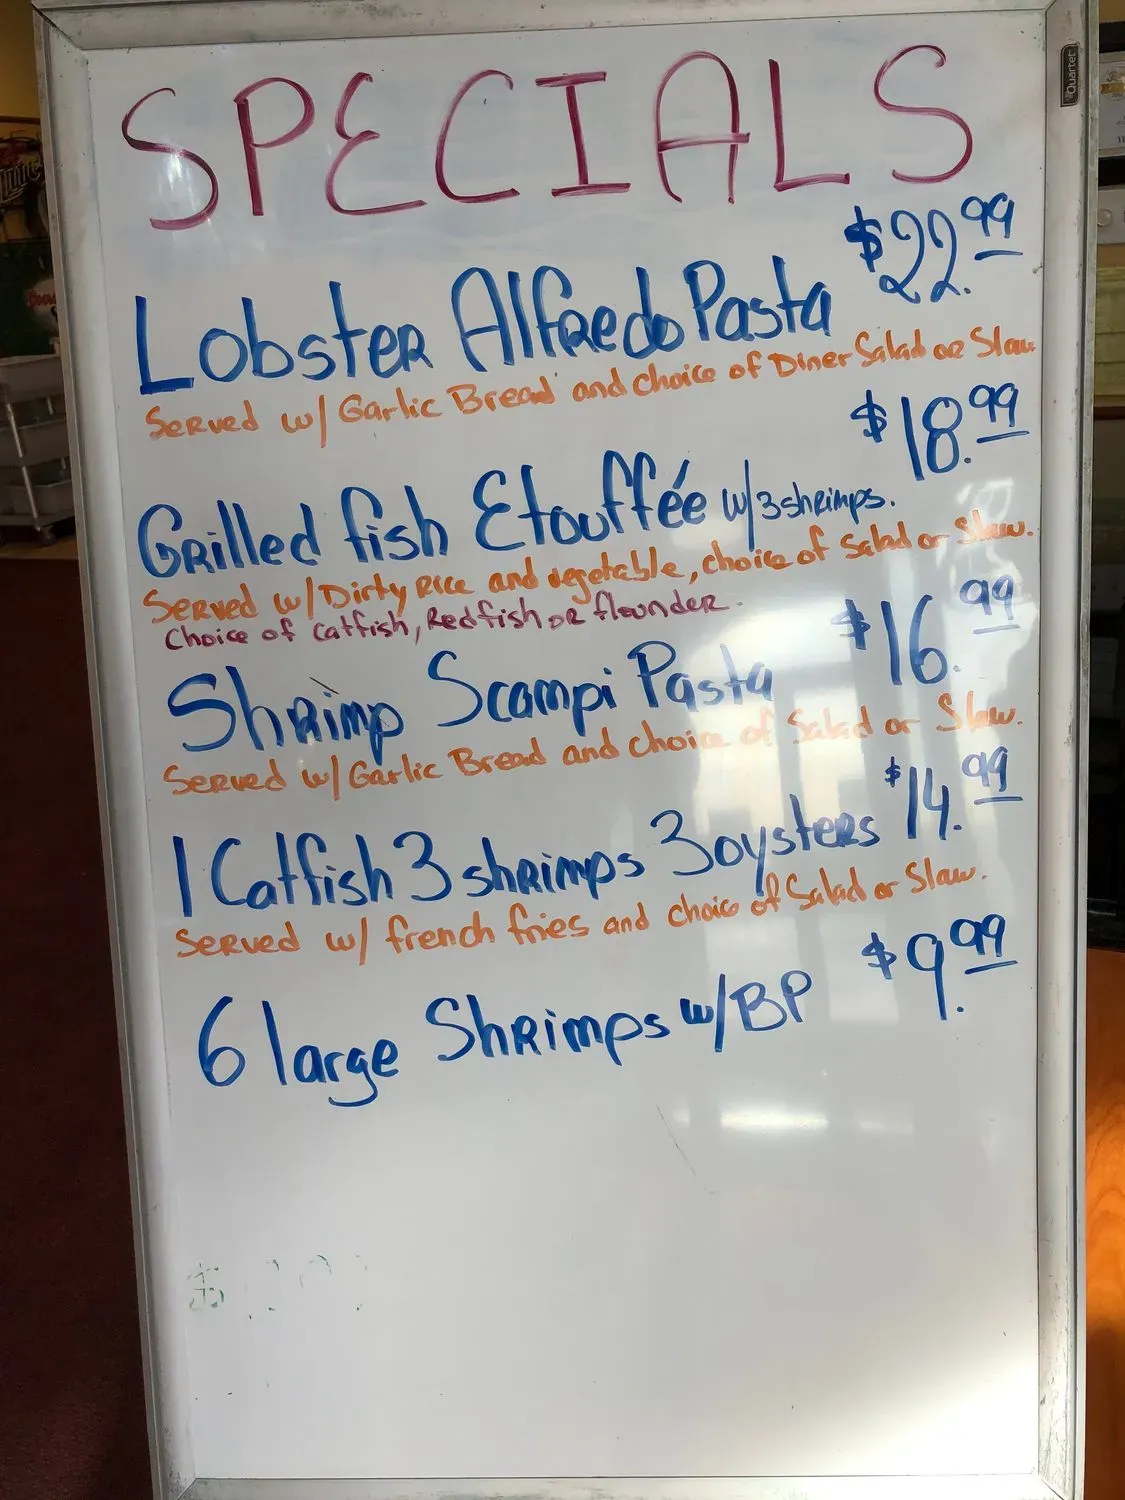 SPECIALS
Quartet
$22.99
Lobster Alfredo Pasta
Served w/ Garlic Bread and choice of Diner Salad or Slaw
$18.99
Grilled fish Etouffée w/3 shrimps.
Served w/ Dirty Rice and vegetable, choice of Salad or Slaw.
Choice of Catfish, Redfish or flounder.
$16.99
Shrimp Scampi Pasta
Served w/ Garlic Bread and choice of Salad or Slaw.
1 Catfish 3 shrimps 3 oysters $14.99
Served w/ french fries and choice of Salad or Slaw.
6 large Shrimps w/BP $9.99